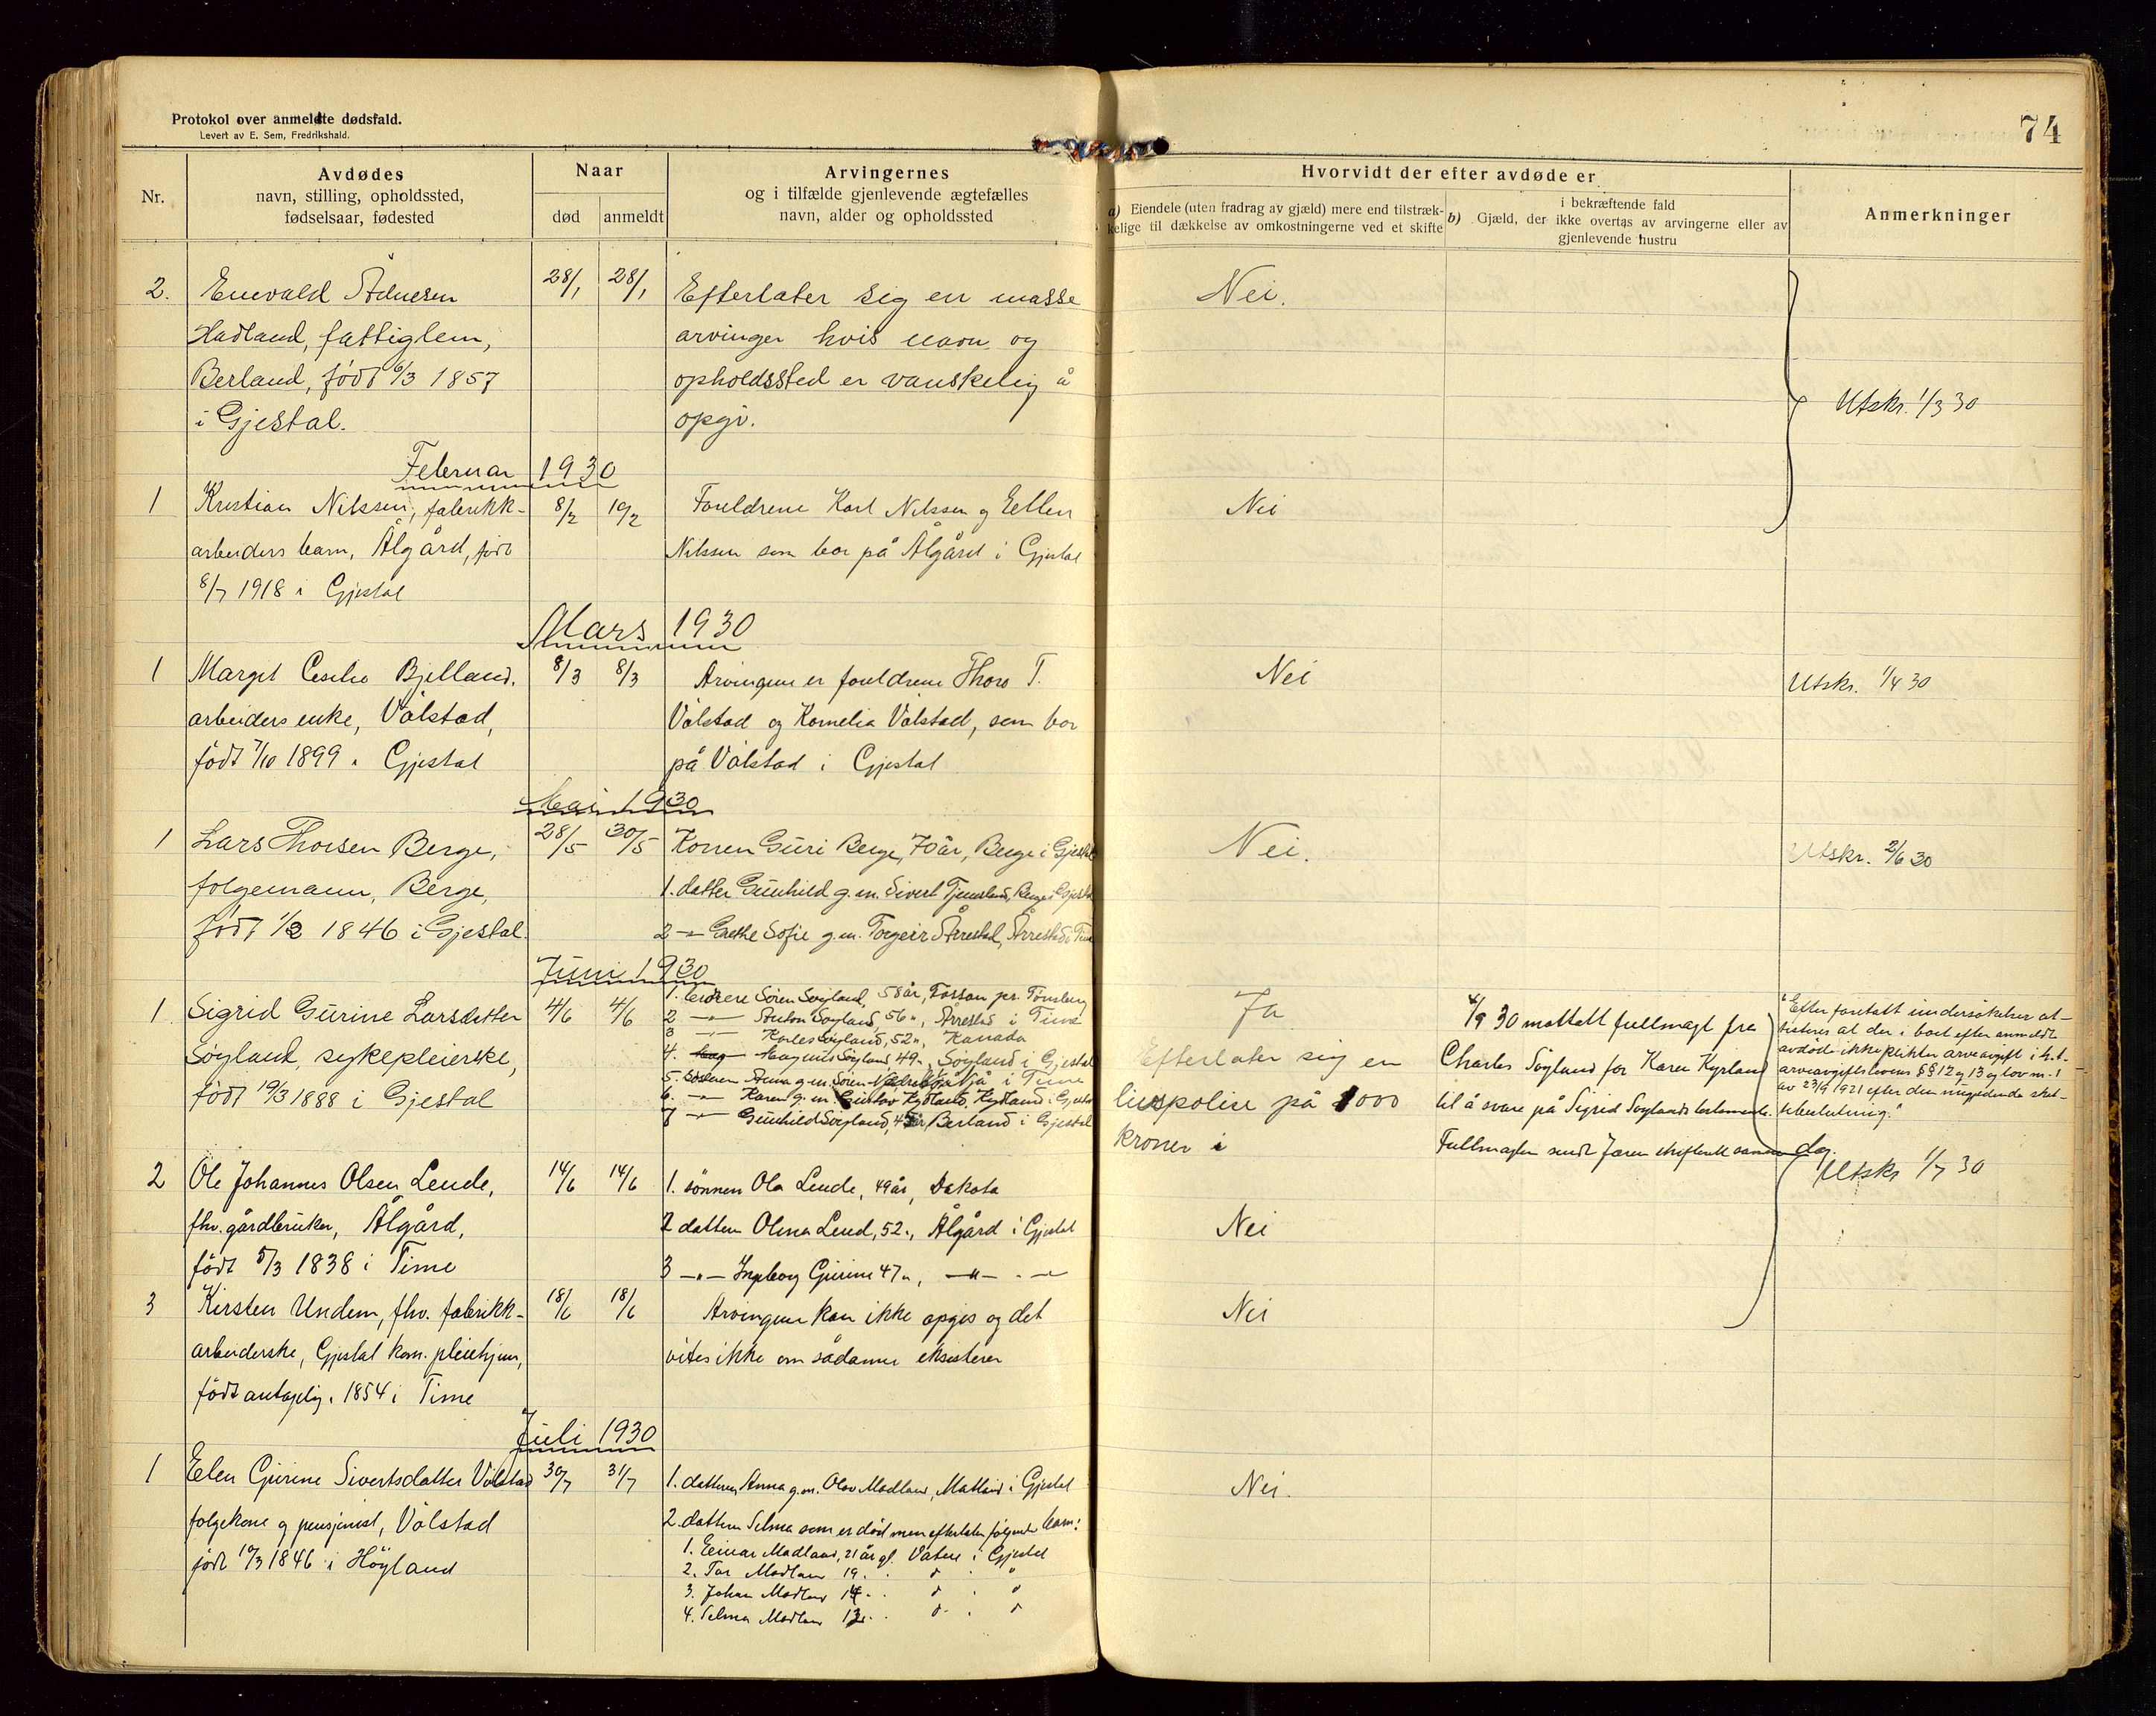 Protokol over anmeldte dødsfald.
Levert av E. Sem, Fredrikshald.
74
Nr.
Avdødes
navn, stilling, opholdssted,
fødselsaar, fødested
Naar
død
anmeldt
Arvingernes
og i tilfælde gjenlevende ægtefælles
navn, alder og opholdssted
Hvorvidt der efter avdøde er
a) Eiendele (uten fradrag av gjæld) mere end tilstræk-
kelige til dækkelse av omkostningerne ved et skifte
b) Gjæld, der
i bekræftende fald
ikke overtas av arvingerne eller av
gjenlevende hustru
Anmerkninger
2.
Enevald Ådnesen
Hadland, fattiglem,
Berland, født 6/3 1857
i Gjestal.
28/1 28/1
Efterlater sig en masse
arvinger hvis navn og
opholdssted er vanskelig å
opgi.
Nei.
Utskr. 1/3 30
Februar 1930
1
Kristian Nilssen, fabrikk-
arbeiders barn, Ålgård, født
8/7 1918 i Gjestal
8/2 19/2
Foreldrene Karl Nilssen og Ellen
Nilssen som bor på Ålgård i Gjestal
Nei
Mars 1930
1
Margit Cecilie Bjelland,
arbeiders enke, Vålstad,
født 7/10 1899 i Gjestal
8/3 8/3
Arvingene er foreldrene Thore T.
Vålstad og Kornelia Vålstad, som bor
på Vålstad i Gjestal
Nei
Utskr. 1/4 30
Mai 1930
1
Lars Thorsen Berge,
folgemann, Berge,
født 1/2 1846 i Gjestal.
28/5 30/5
Konen Guri Berge, 70 år, Berge i Gjestal
1. datter Gunhild g.m. Sivert Tjensland, Berge i Gjestal
2 -"- Grethe Sofie g.m. Torgeir Årrestad, Årrestad i Time
Nei.
Utskr. 2/6 30
Juni 1930
1
Sigrid Gurine Larsdatter
Søyland, sykepleierske,
født 19/3 1888 i Gjestal
4/6 4/6
1. brødrene Søren Søyland, 58 år, Fossan pr. Tønsberg
2 -"- Anton Søyland, 56 ", Årrestad i Time
3 -"- Karles Søyland, 52 ", Kanada
4. Magnus Søyland 49 ", Søyland i Gjestal
5. søsteren Anna g.m. Søren Nedrebø, Njå i Time
6. -"- Karen g.m. Gustav Kydland, Kydland i Gjestal
7 -"- Gunhild Søyland, 45 år, Berland i Gjestal
Ja
Efterlater sig en
livspolise på 1000
kroner i
4/9 30 mottatt fullmagt fra
Charles Søyland for Karen Kyrland
til å svare på Sigrid Søylands testamente.
Fullmagten sendt Jæren skifterett samme dag.
"Efter foretatt undersøkelser at-
testeres at der i boet efter anmeldte
avdøde ikke plikter arveavgift i h.t.
arveavgiftslovens §§ 12 og 13 og lov nr. 1
av 23/9 1921 efter den nugjeldende skat-
tebeslutning."
2
Ole Johannes Olsen Lende,
fhv. gårdbruker, Ålgård,
født 5/3 1838 i Time
14/6 14/6
1. sønnen Ola Lende, 49 år, Dakota
2 datteren Olena Lend, 52 ", Ålgård i Gjestal
3 -"- Ingeborg Gurine 47 ", -"- -"-
Nei
Utskr 1/7 30
3
Kirsten Undem, fhv. fabrikk-
arbeiderske, Gjestal kom. pleiehjem,
født antagelig i 1854 i Time
18/6 18/6
Arvingene kan ikke opgis og det
vites ikke om sådanne eksisterer
Nei
Juli 1930
1
Elen Gurine Sivertsdatter Vålstad
folgekone og pensjonist, Vålstad
født 10/3 1846 i Høyland
30/7 31/7
1. datteren Anna g.m. Olav Madland, Madland i Gjestal
2. datteren Selma som er død men efterlater følgende barn:
1. Einar Madland, 21 år gl. Vatne i Gjestal
2. Tor Madland 19 " " "
3. Johan Madland 14 " " "
4. Selma Madland 12 " " "
Nei.